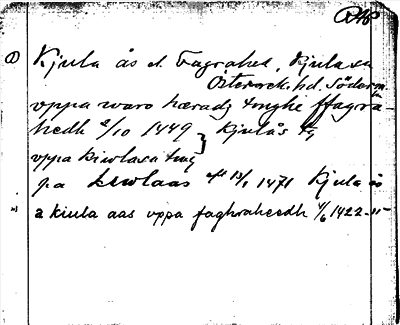 Kjula ås el. Fagrahed, Kjula sn
Österrek. hd. Söderm.
vppa waro hæradz tinghe ffagra-
hedh 2/10 1449 } Kjulås
vppa kiwlasa ting
pa kiwlaas 13/1 1471 Kjula ås
a kiula aas vppa faghraheedh 4/6 1422